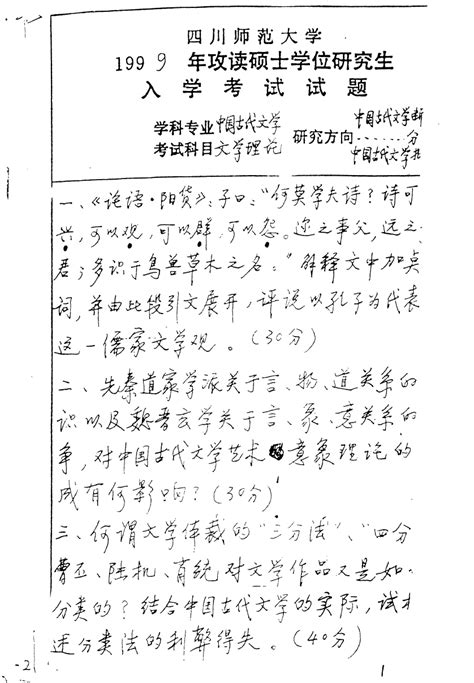 四川师范大学
1999 年攻读硕士学位研究生
入学考试试题
学科专业中国古代文学 研究方向中国古代文学断
考试科目文学理论 中国古代文学批
一、《论语·阳货》：子曰："何莫学夫诗？诗可
兴，可以观，可以群，可以怨。迩之事父，远之
君；多识于鸟兽草木之名。"解释文中加点
词，并由此段引文展开，评说以孔子为代表
这一儒家文学观。（30分）
二、先秦道家学派关于言、物、道关系的
识以及魏晋玄学关于言、象、意关系的
争，对中国古代文学艺术意象理论的
成有何影响？（30分）
三、何谓文学体裁的"三分法"、"四分
曹丕、陆机、萧统对文学作品又是如
分类的？结合中国古代文学的实际，试才
述分类法的利弊得失。（40分）
-2
1